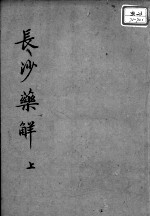 長沙藥解
上